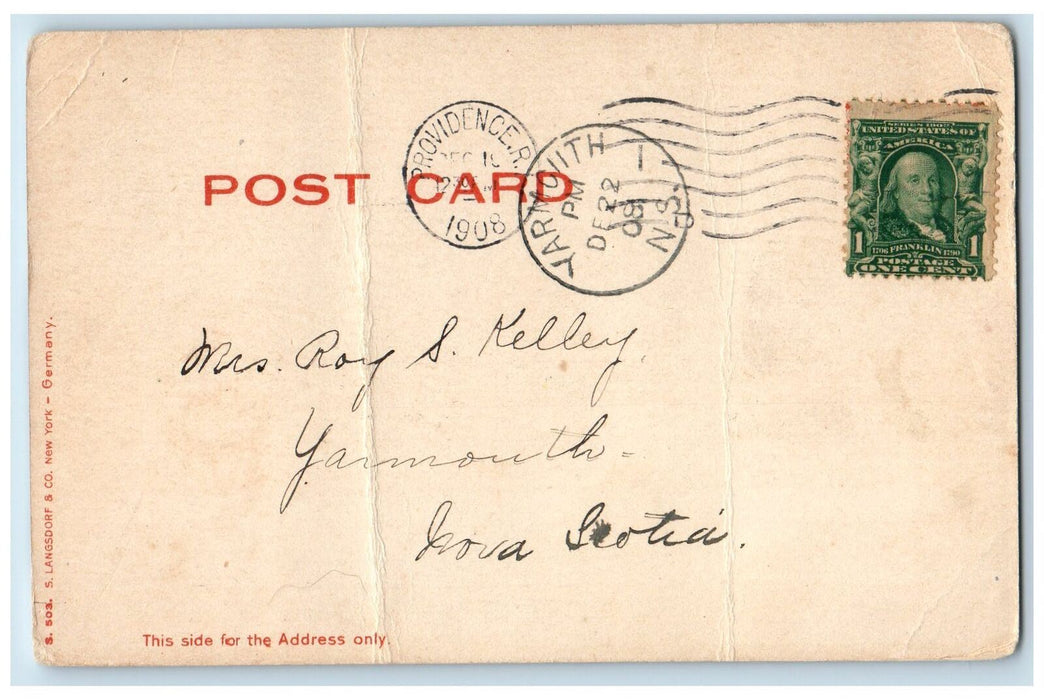 POST CARD
PROVIDENCE, R.
DEC 18
1908
YARMOUTH
PM
DE 22
08
N.S.
SERIES 1902
UNITED STATES OF
AMERICA
1 1706 FRANKLIN 1790 1
POSTAGE
ONE CENT
Mrs. Roy S. Kelley,
Yarmouth-
Nova Scotia.
S. 503. S. LANGSDORF & CO. New York - Germany.
This side for the Address only.